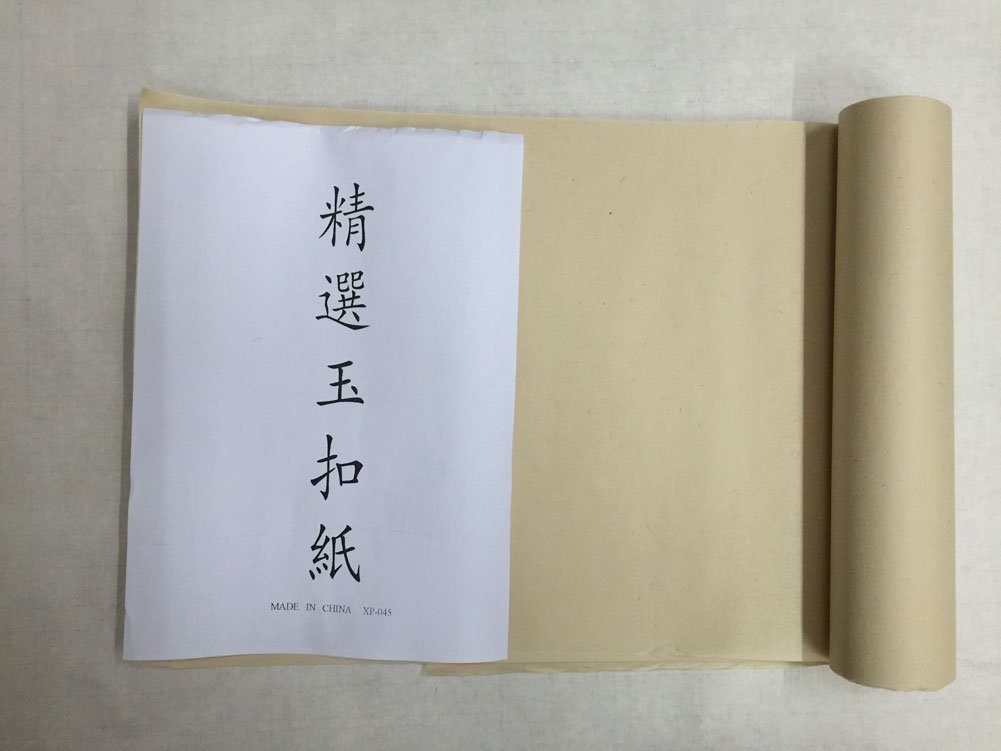 精選玉扣紙
MADE IN CHINA XP-045